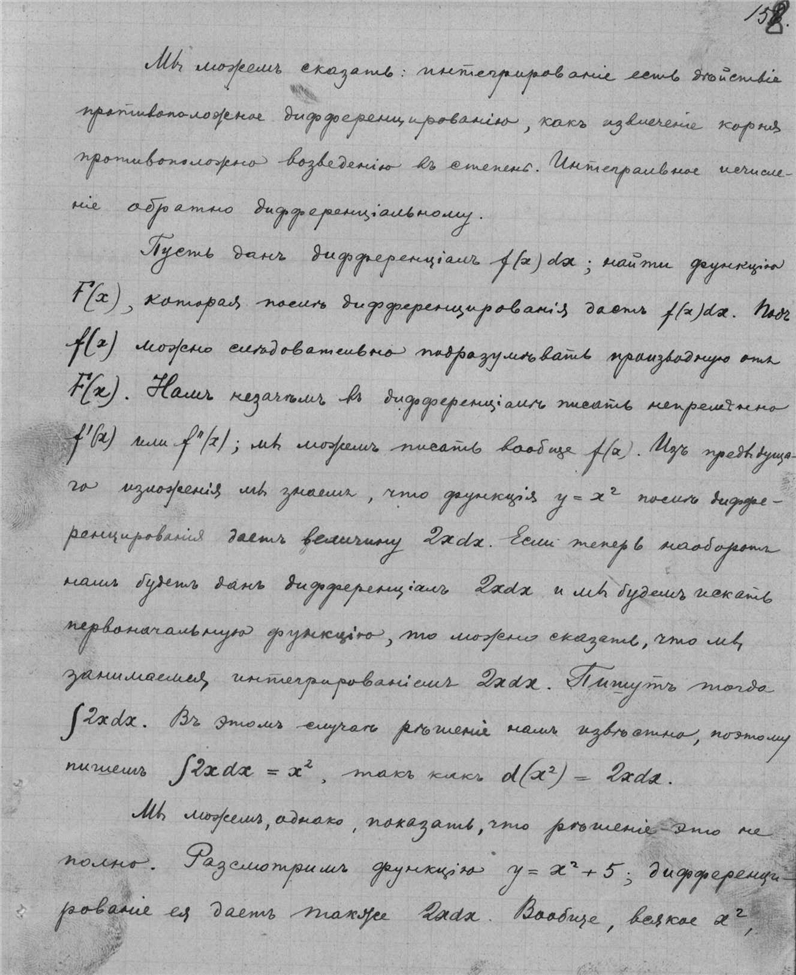 158.
Мы можемъ сказать: интегрированіе есть дѣйствіе
противоположное дифференцированію, какъ извлеченіе корня
противоположно возведенію въ степень. Интегральное исчисле-
ніе обратно дифференціальному.
Пусть данъ дифференціалъ f(x)dx; найти функцію
F(x), которая послѣ дифференцированія даетъ f(x)dx. Подъ
f(x) можно слѣдовательно подразумѣвать производную отъ
F(x). Намъ незачѣмъ въ дифференціалѣ писать непремѣнно
f'(x) или f"(x); мы можемъ писать вообще f(x). Изъ предыдуща-
го изложенія мы знаемъ, что функція y = x² послѣ диффе-
ренцированія даетъ величину 2xdx. Если теперь наоборотъ
намъ будетъ данъ дифференціалъ 2xdx и мы будемъ искать
первоначальную функцію, то можно сказать, что мы
занимаемся интегрированіемъ 2xdx. Пишутъ тогда
∫2xdx. Въ этомъ случаѣ рѣшеніе намъ извѣстно, поэтому
пишемъ ∫2xdx = x², такъ какъ d(x²) = 2xdx.
Мы можемъ, однако, показать, что рѣшеніе это не
полно. Разсмотримъ функцію y = x² + 5; дифференци-
рованіе ея даетъ также 2xdx. Вообще, всякое x²,